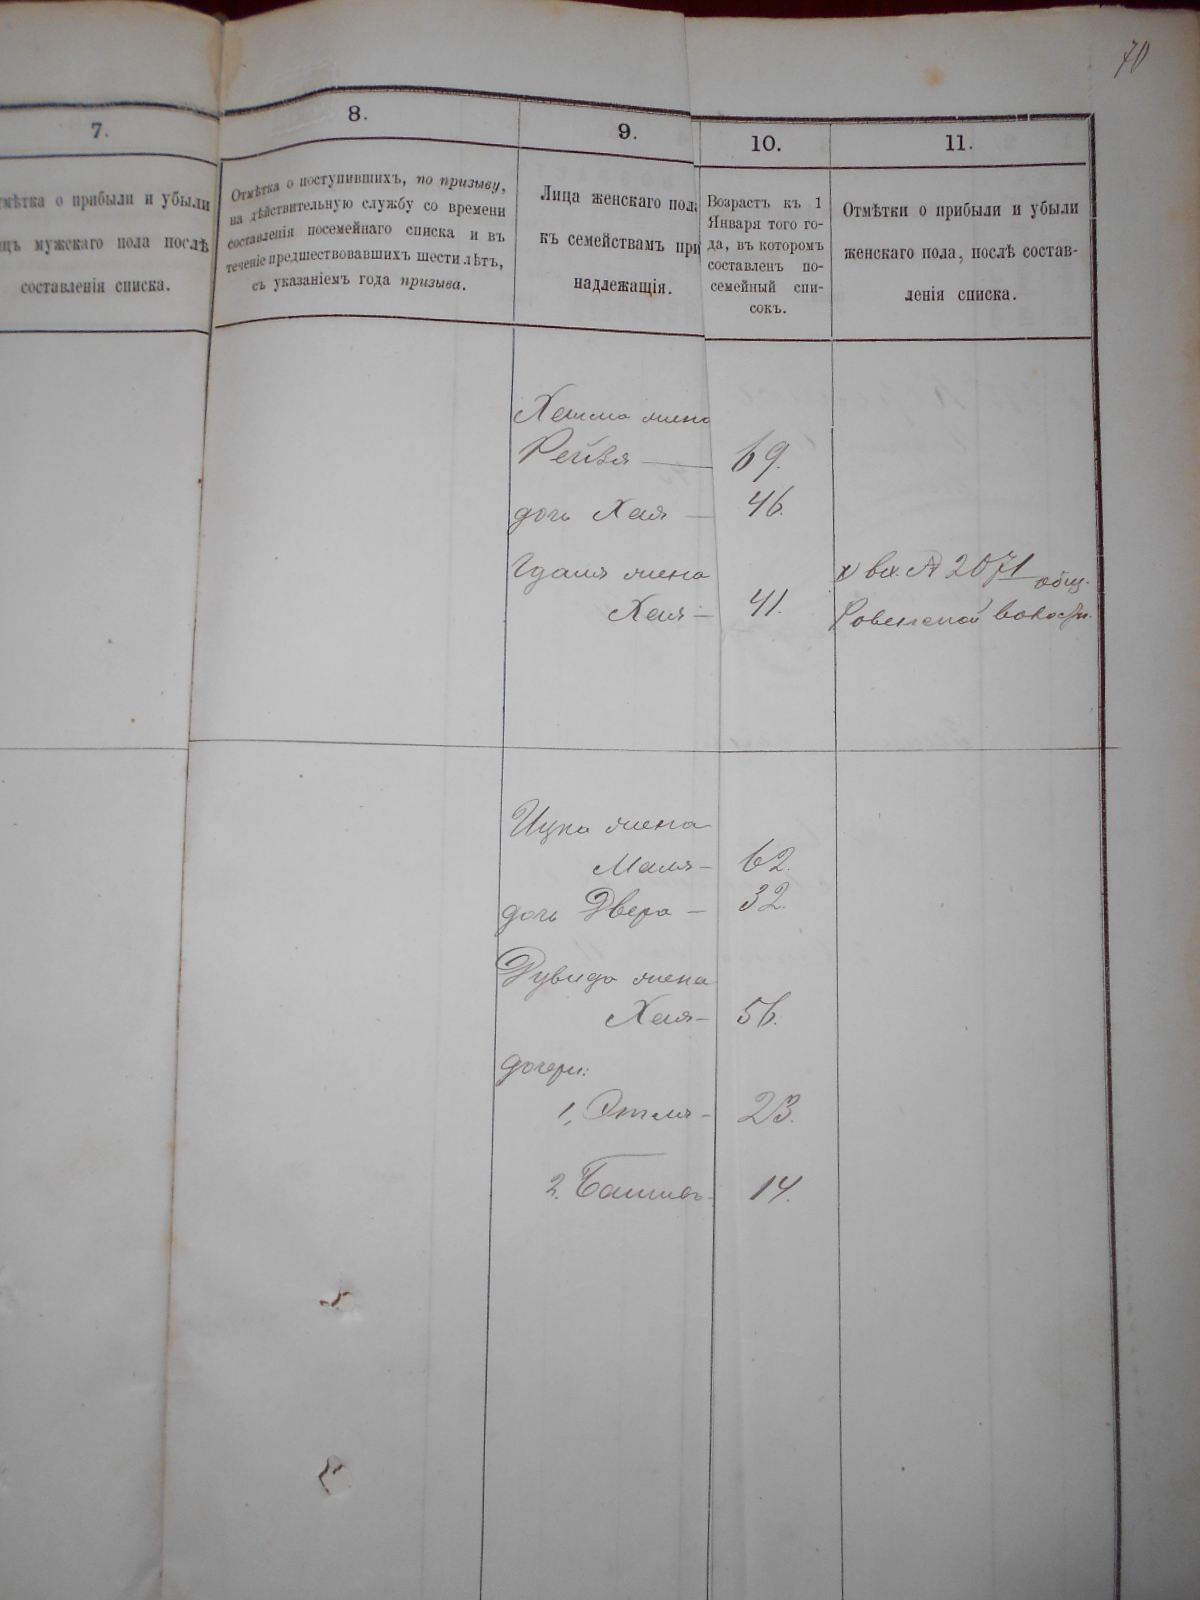 70
7.
8.
9.
10.
11.
мѣтка о прибыли и убыли
цъ мужскаго пола послѣ
составленія списка.
Отмѣтка о поступившихъ, по призыву,
на дѣйствительную службу со времени
составленія посемейнаго списка и въ
теченіе предшествовавшихъ шести лѣтъ,
съ указаніемъ года призыва.
Лица женскаго пол
къ семействамъ при
надлежащія.
Возрастъ къ 1
Января того го-
да, въ которомъ
составленъ по-
семейный спи-
сокъ.
Отмѣтки о прибыли и убыли
женскаго пола, послѣ состав-
ленія списка.
жена
Рейзя — 69.
дочь Хая — 46.
Гдаля жена
Хая — 41.
вх. № 2071 общ.
Ровенской волости.
Ицка жена
Маля — 62.
дочь Двера — 32.
Дувида жена
Хая — 56.
дочери:
1, Этля — 23.
2. 14.